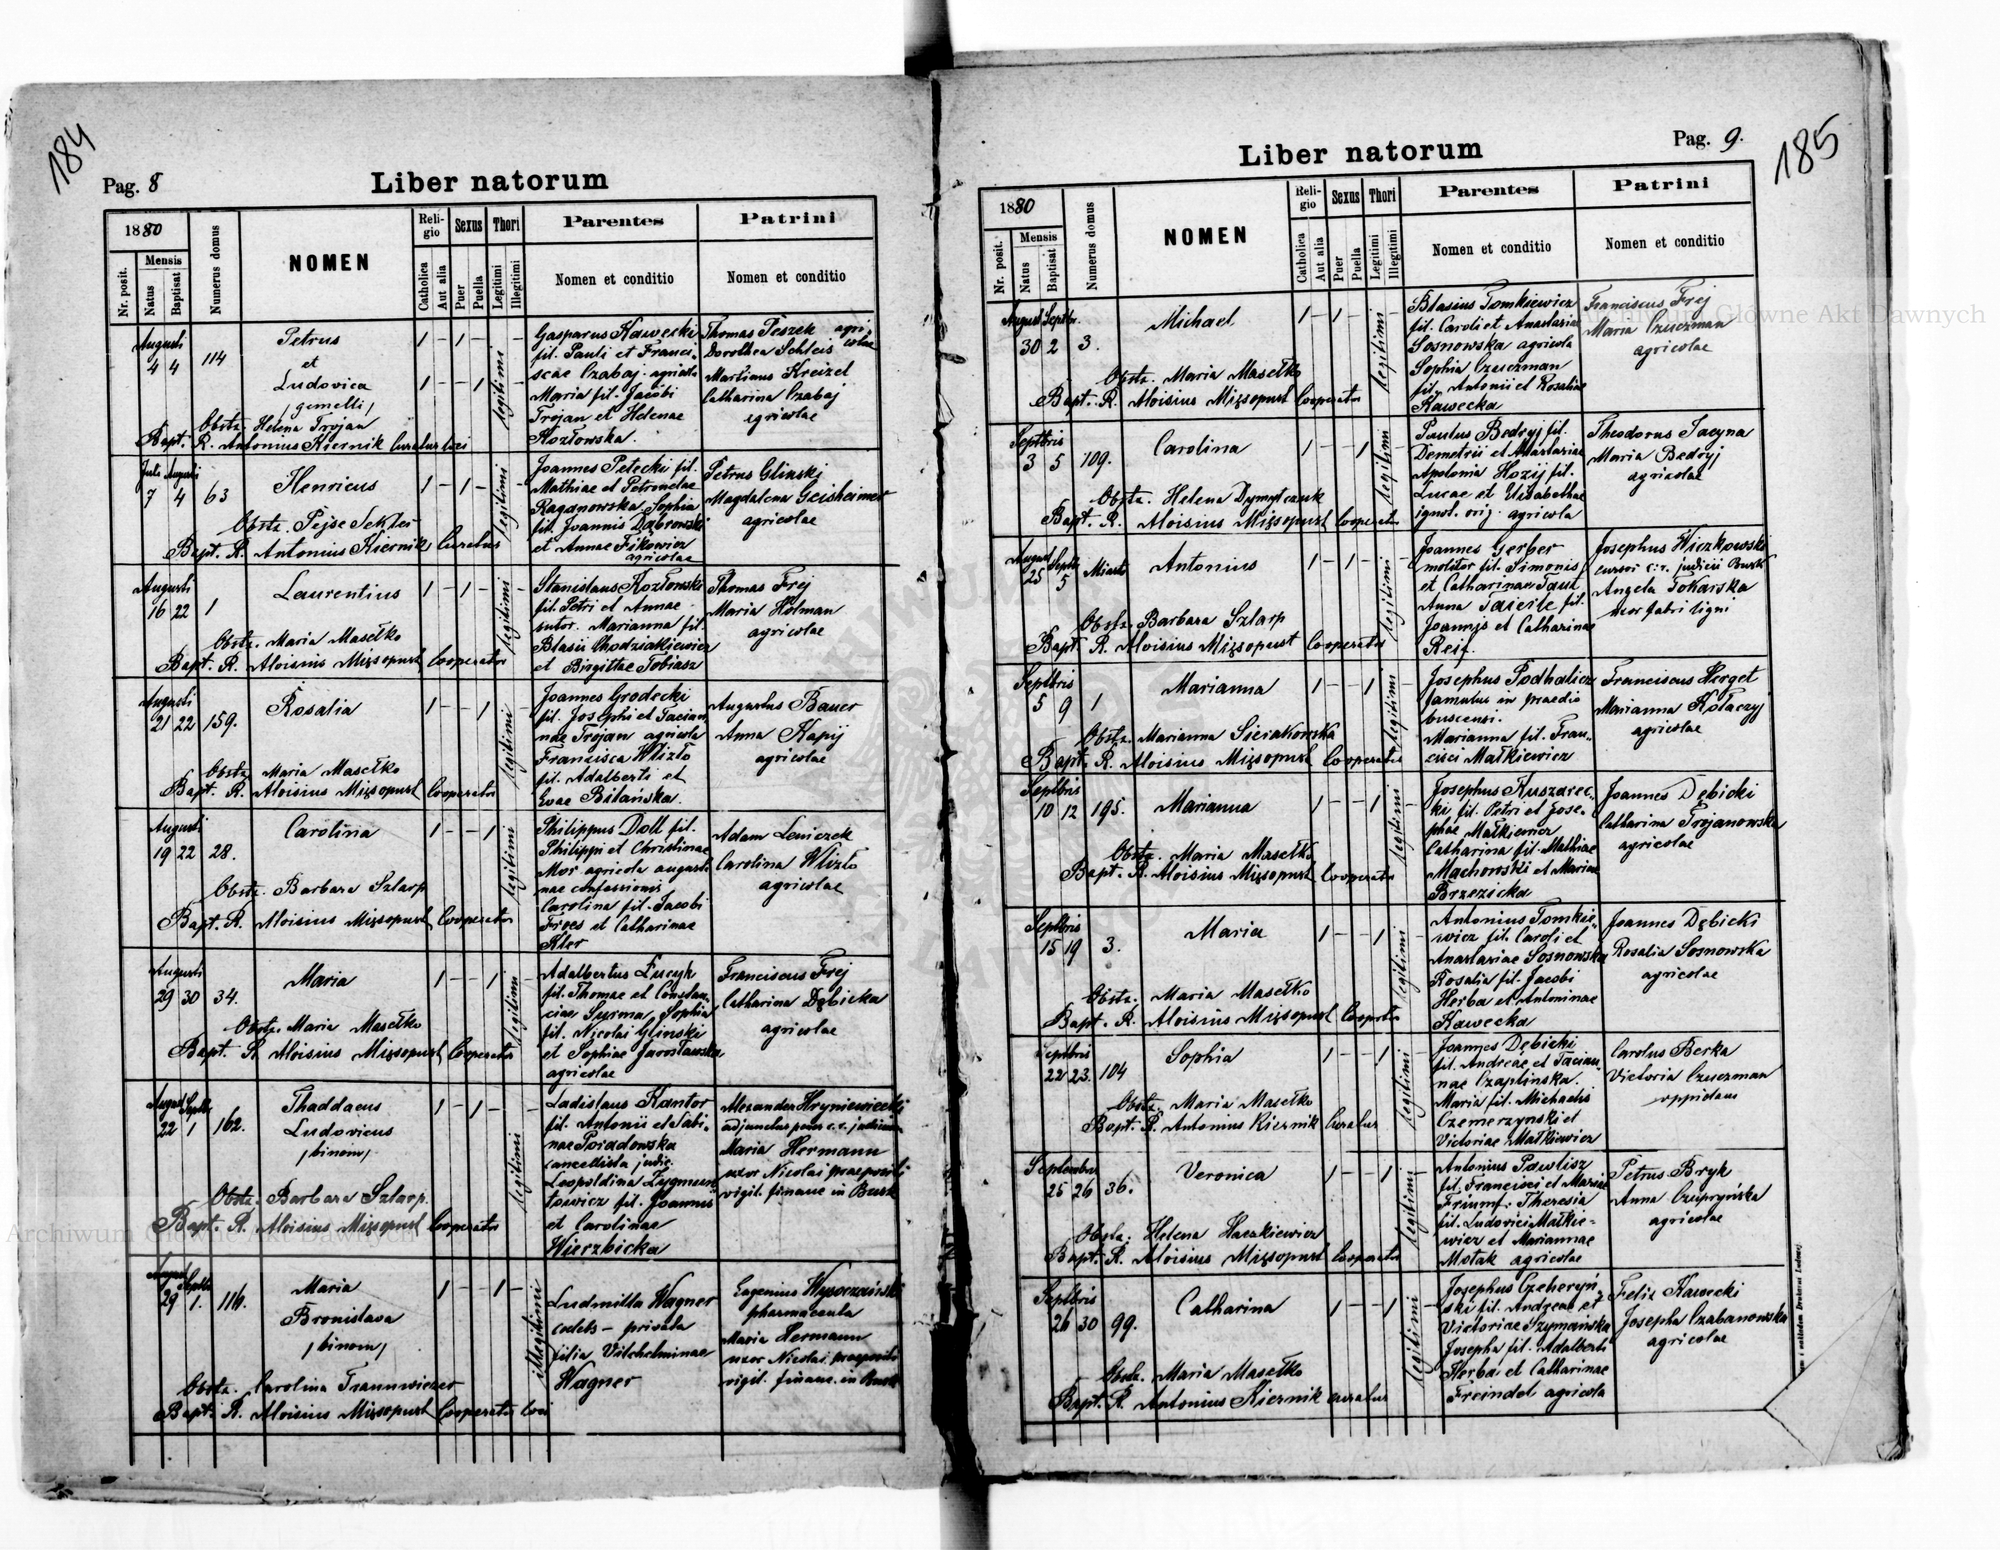 184
Pag. 8
Liber natorum
1880
Nr. posit.
Mensis
Natus
Baptisat
Numerus domus
NOMEN
Religio
Catholica
Aut alia
Sexus
Puer
Puella
Thori
Legitimi
Illegitimi
Parentes
Nomen et conditio
Patrini
Nomen et conditio
Augusti
4 4 114
Petrus
et
Ludovica
/gemelli/
Obstz. Helena Trojan
Bapt. R. Antonius Kiernik Curatus loci
legitimi
Gasparus Kawecki
fil. Pauli et Franci-
scae Czabaj agricola
Maria fil. Jacobi
Trojan et Helenae
Kozłowska.
Thomas Peszek agri-
colae
Dorothea Schleis
Martinus Kreizel
Catharina Czabaj
agricolae
Juli Augusti
7 4 63
Henricus
Obstz. Pejse Sekler
Bapt. R. Antonius Kiernik Curatus
legitimi
Joannes Petecki fil.
Mathiae et Petronelae
Raganowska Sophia
fil. Joannis Dąbrowski
et Annae Fikowicz
agricolae
Petrus Glinski
Magdalena Geisheimer
agricolae
Augusti
16 22 1
Laurentius
Obstz. Maria Masełko
Bapt. R. Aloisius Mizsopust Cooperator
legitimi
Stanislaus Kozłowski
fil. Petri et Annae
sutor. Marianna fil.
Blasii Chodziakiewicz
et Birgittae Tobiasz
Thomas Frej
Maria Holman
agricolae
Augusti
21 22 159.
Rosalia
Obstz. Maria Masełko
Bapt. R. Aloisius Mizsopust Cooperator
legitimi
Joannes Grodecki
fil. Josephi et Tacian-
nae Trojan agricola
Francisca Wlizło
fil. Adalberti et
Evae Bilańska.
Augustus Bauer
Anna Kapij
agricolae
Augusti
19 22 28.
Carolina
Obstz. Barbara Szlarp
Bapt. R. Aloisius Mizsopust Cooperator
legitimi
Philippus Doll fil.
Philippi et Christinae
Mor agricola augusta-
nae confessionis
Carolina fil. Jacobi
et Catharinae
Kler
Adam Leniczek
Carolina Wlizło
agricolae
Augusti
29 30 34.
Maria
Obstz. Maria Masełko
Bapt. R. Aloisius Mizsopust Cooperator
legitimi
Adalbertus Łucyk
fil. Thomae et Constan-
ciae Surma, Sophia
fil. Nicolai Glinski
et Sophiae Jarosławska
agricolae
Franciscus Frej
Catharina Dębicka
agricolae
August Septbr
22 1 162.
Thaddaeus
Ludovicus
/binom/
Obstz. Barbara Szlarp.
Bapt. R. Aloisius Mizsopust Cooperator
legitimi
Ladislaus Kantor
fil. Antonii et Sabi-
nae Posadowska
cancellista judic.
Leopoldina Zygmun-
towicz fil. Joannis
et Carolinae
Wierzbicka
Alexander Hryniewiecki
adjunctus penes c.r. judicium
Maria Hermann
uxor Nicolai praepositi
vigil. financ. in Busk
August Septbr
29 1. 116.
Maria
Bronislava
/binom/
Obstz. Carolina Trannwiczer
Bapt. R. Aloisius Mizsopust Cooperator loci
illegitimi
Ludmilla Wagner
coelebs - privata
filia Vilhelminae
Wagner
Eugenius Wysoczański
pharmaceuta
Maria Hermann
uxor Nicolai praepositi
vigil. financ. in Busk
185
Liber natorum
Pag. 9.
1880
Nr. posit.
Mensis
Natus
Baptisat
Numerus domus
NOMEN
Religio
Catholica
Aut alia
Sexus
Puer
Puella
Thori
Legitimi
Illegitimi
Parentes
Nomen et conditio
Patrini
Nomen et conditio
August Septbr.
30 2 3.
Michael
Obstz. Maria Masełko
Bapt. R. Aloisius Mizsopust Cooperator
legitimi
Blasius Tomkiewicz
fil. Caroli et Anastasiae
Sosnowska agricola
Sophia Czuczman
fil. Antonii et Rosaliae
Kawecka
Franciscus Frej
Maria Czuczman
agricolae
Septbris
3 5 109.
Carolina
Obstz. Helena Dymytczuk
Bapt. R. Aloisius Mizsopust Cooperator
legitimi
Paulus Bedryj fil.
Demetrii et Anastasiae
Apolonia Hozij fil.
Lucae et Elisabethae
ignot. orig. agricola
Theodorus Jacyna
Maria Bedryj
agricolae
August Septbr
25 5 Miasto
Antonius
Obstz. Barbara Szlarp
Bapt. R. Aloisius Mizsopust Cooperator
legitimi
Joannes Gerber
molitor fil. Simonis
et Catharinae Taut
Anna fil.
Joannis et Catharinae
Reif.
Josephus Wiczkowski
cursor c.r. judicii Busk
Angela Tokarska
uxor fabri ligni
Septbris
5 9 1
Marianna
Obstz. Marianna Sierakowska
Bapt. R. Aloisius Mizsopust Cooperator
legitimi
Josephus Podhalicz
famulus in praedio
buscensi.
Marianna fil. Fran-
cisci Małkiewicz
Franciscus Herget
Marianna Kołaczyj
agricolae
Septbris
10 12 195.
Marianna
Obstz. Maria Masełko
Bapt. R. Aloisius Mizsopust Cooperator
legitimi
Josephus Kuszarec-
ki, fil. Petri et Jose-
phae Małkiewicz
Catharina fil. Mathiae
Machowski et Mariae
Brzezicka
Joannes Dębicki
Catharina Trojanowska
agricolae
Septbris
15 19 3.
Maria
Obstz. Maria Masełko
Bapt. R. Aloisius Mizsopust Cooprtor
legitimi
Antonius Tomkie-
wicz fil. Caroli et
Anastasiae Sosnowska
Rosalia fil. Jacobi
Herba et Antoninae
Kawecka
Joannes Dębicki
Rosalia Sosnowska
agricolae
Septbris
22 23. 104
Sophia
Obstz. Maria Masełko
Bapt. R. Antonius Kiernik Curatus
legitimi
Joannes Dębicki
fil. Andreae et Tacian-
nae Czaplinska.
Maria fil. Michaelis
Czemerzynski et
Victoriae Małkiewicz
Carolus Berka
Victoria Czuczman
oppidani
Septembr
25 26 36.
Veronica
Obstz. Helena Harakiewicz
Bapt. R. Aloisius Mizsopust Cooperator
legitimi
Antonius Pawlisz
fil. Francisci et Mariae
Triumf. Theresia
fil. Ludovici Małkie-
wicz et Mariannae
Motak agricolae
Petrus Bryk
Anna Czupryńska
agricolae
Septbris
26 30 99.
Catharina
Obstz. Maria Masełko
Bapt. R. Antonius Kiernik curatus
legitimi
Josephus Czeheryń-
ski fil. Andreae et
Victoriae Szymańska
Josepha fil. Adalberti
Herba et Catharinae
Freindel agricola
Felix Kawecki
Josepha Czabanowska
agricolae
Archiwum Główne Akt Dawnych
Archiwum Główne Akt Dawnych